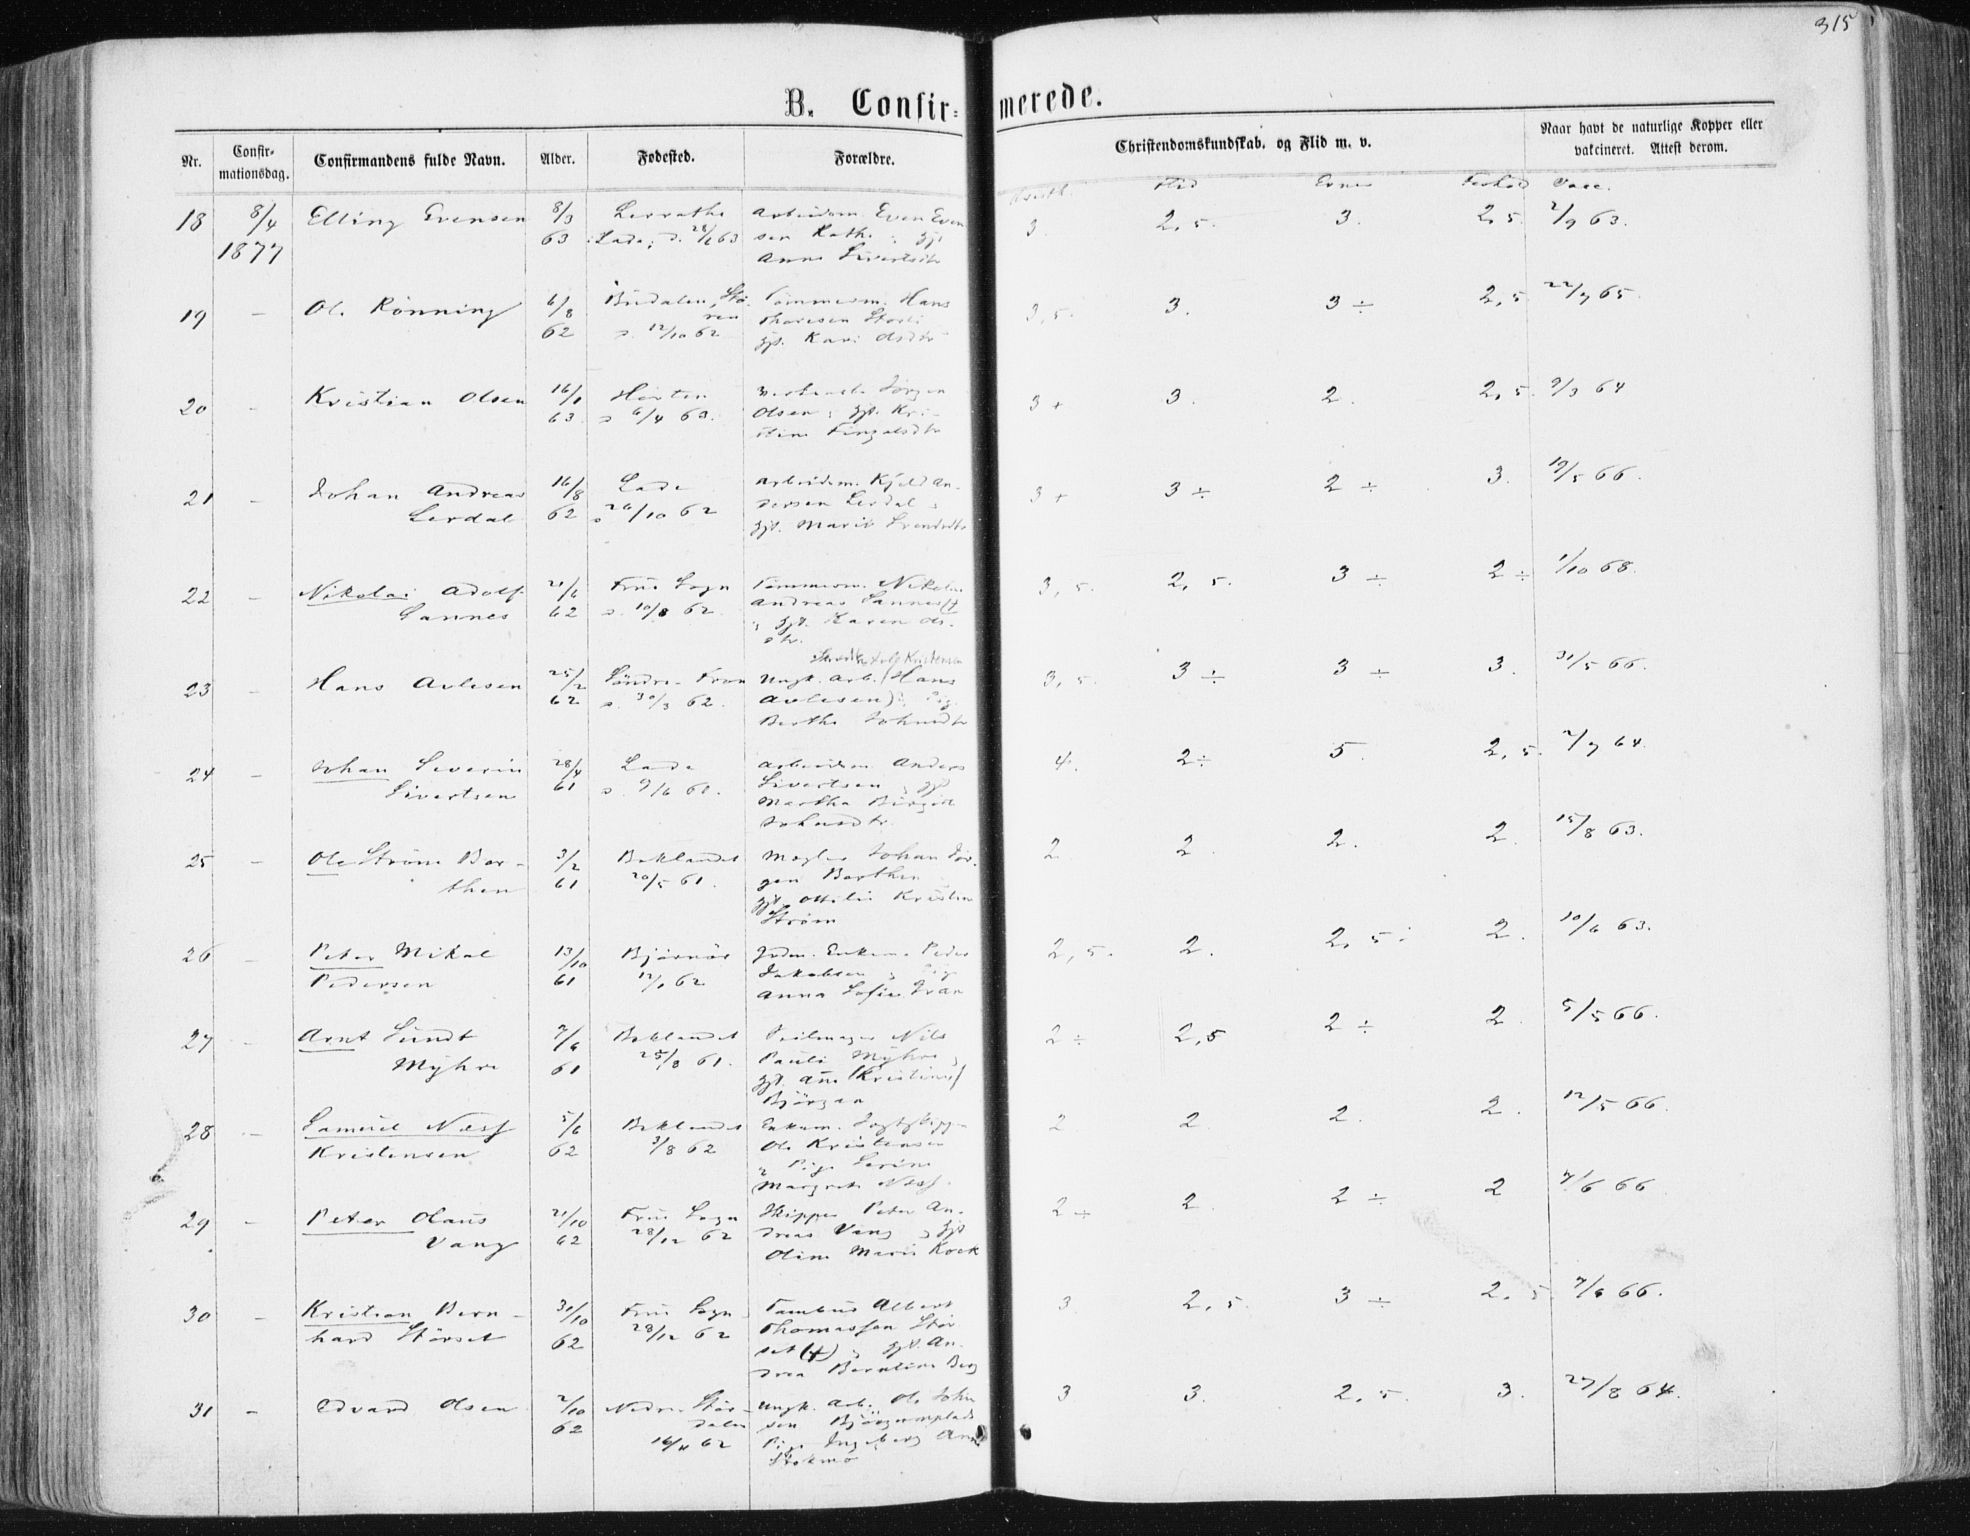 315
B. Confir-merede.
Nr. Confir-mationsdag. Confirmandens fulde Navn. Alder. Fødested. Forældre. Christendomskundskab, og Flid m. v. Naar havt de naturlige Kopper eller vakcineret. Attest derom.
Flid Evner Forhold Vacc.
18 8/4 Elling Evensen 8/3 Arbeidsm. Even Even 3. 2,5. 3. 2,5. 2/9 63.
1877 63 Lade; d. 28/6 63 sen
Anne Sivertsdtr
19 - Ol. Rönning 6/8 Budalen, Stø- Tømmerm. Hans 3,5. 3. 3 ÷ 2,5 22/7 65.
62 ren Thoresen
d. 12/10 62 gjt. Kari Olsdtr
20 - Kristian Olsen 16/1 Horten Jörgen 3+ 3. 2. 2,5. 9/3 64
63. d 6/4 63. Olsen ; gjt. Kri-
stine Fingalsdtr
21 - Johan Andreas 16/8 Lade Arbeidsm. Kjeld An- 3+ 3 ÷ 2 ÷ 3. 19/5 66.
Lerdal 62 d 26/10 62 dersen Lerdal ;
gjt. Marit Svendsdtr
22 - Nikolai Adolf 21/6 Frue Sogn Tømmerm. Nikolai 3,5. 2,5. 3 ÷ 2 ÷ 1/10 68.
Sannes 62 d. 10/8 62. Andreas Sannes (†)
; gjt. Karen Ols-
dtr.
23 - Hans Avlesen 25/2 Söndre Fron Ungk. Arb. (Hans 3,5. 3 ÷ 3 ÷ 3. 31/5 66.
62 d. 30/3 62. Avlesen) ; Pig.
Berthe Johnsdtr
24 - Johan Severin 28/4 Lade Arbeidsm. Anders 4. 2÷ 5. 2,5. 2/7 64.
Sivertsen 61 d. 9/6 61. Sivertsen ; gjt
Martha Birgit
Johnsdtr.
25 - Ole Ström Bar- 3/2 Baklandet Mægler Johan Jör- 2 2. 2. 2. 15/8 63.
then 61 20/5 61. gen Barthen
gjt. Ottilie Kristine
Ström
26 - Peter Mikal 13/10 Bjørnør Enkem. Peder 2,5. 2. 2,5. 2. 10/6 63.
Pedersen 61 12/1 62 Jakobsen ; Pig
Anna Sofie
27 - Arnt Sundt 7/6 Baklandet Seilmager Nils 2÷ 2,5 2 ÷ 2. 5/5 66.
Myhre 61 25/8 61. Pauli Myhre ;
gjt. Ane (Kristine)
Björgan
28 - Samuel Næss 5/6 Baklandet Enkem. 2 2 2. 2. 12/5 66.
Kristensen 62 3/8 62 Ole Kristensen
; Pige Serine
Margrete Næss.
29 - Peter Olaus 21/10 Frue Sogn Skipper Peter An- 2÷ 2. 2 ÷ 2 7/6 66
Vang 62 28/12 62 dreas Vang ; gjt
Oline Marie Kock
30 - Kristian Bern- 31/10 Frue Sogn Tambur Albert 3 2,5. 3 ÷ 2,5 7/6 66.
hard Störset 62 28/12 62 Thomassen Stør
set (†) ; gjt. An-
drea Berntine Berg
31 - Edvard Olsen 2/10 Nedre Stør- Ungk. Arb. Ole John 3 3. 2,5. 3. 27/8 64.
62 dalen sen
16/11 62 Pige Ingeborg Anna
Stokmo